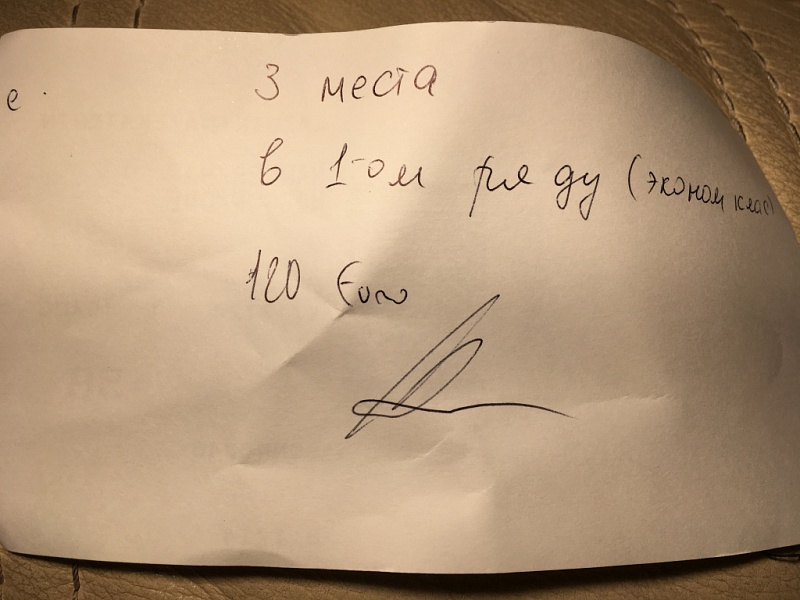 е.
3 места
в 1-ом ряду (эконом клас)
120 Euro